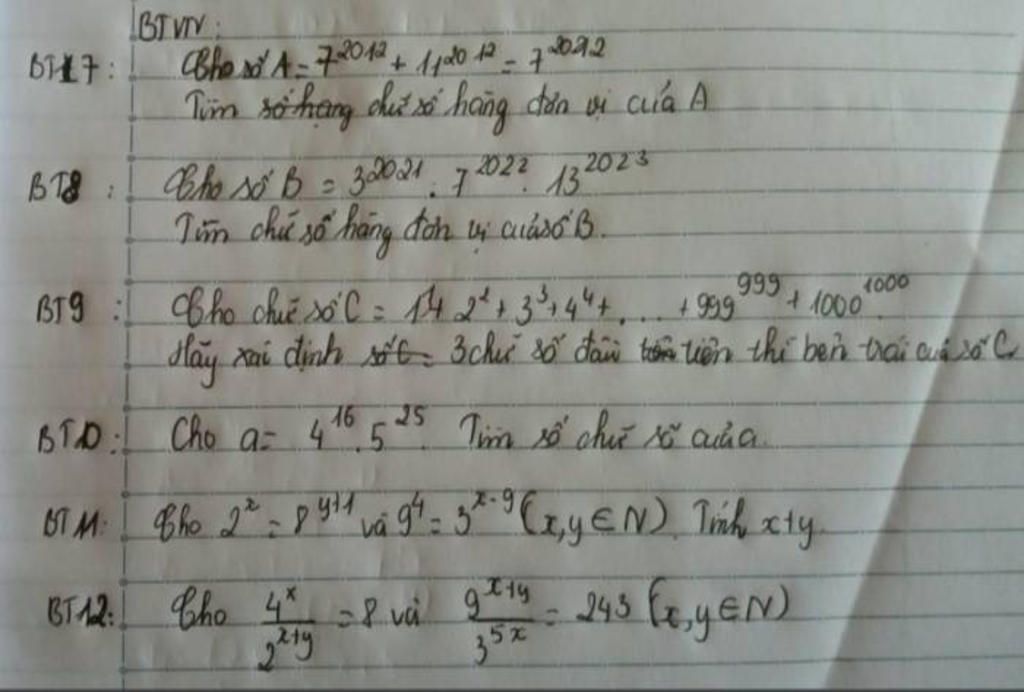 BTVN:
BT17: Cho số A = 7^2012 + 11^2012 = 7^2022
Tìm số hạng chữ số hàng đơn vị của A
BT8: Cho số B = 3^2021 . 7^2022 . 13^2023
Tìm chữ số hàng đơn vị của số B.
BT9: Cho chữ số C = 1 + 2^2 + 3^3 + 4^4 + .... + 999^999 + 1000^1000.
Hãy xai định số C = 3 chữ số đầu tiên tiên thí bên trái của số C
BT10: Cho a = 4^16 . 5^25. Tìm số chữ số của a.
BT11: Cho 2^x = 8^y+1 và 9^4 = 3^x-9 (x,y ∈ N). Tính x+y.
BT12: Cho 4^x / 2^x+y = 8 và 9^x+y / 3^5x = 243 (x,y ∈ N)